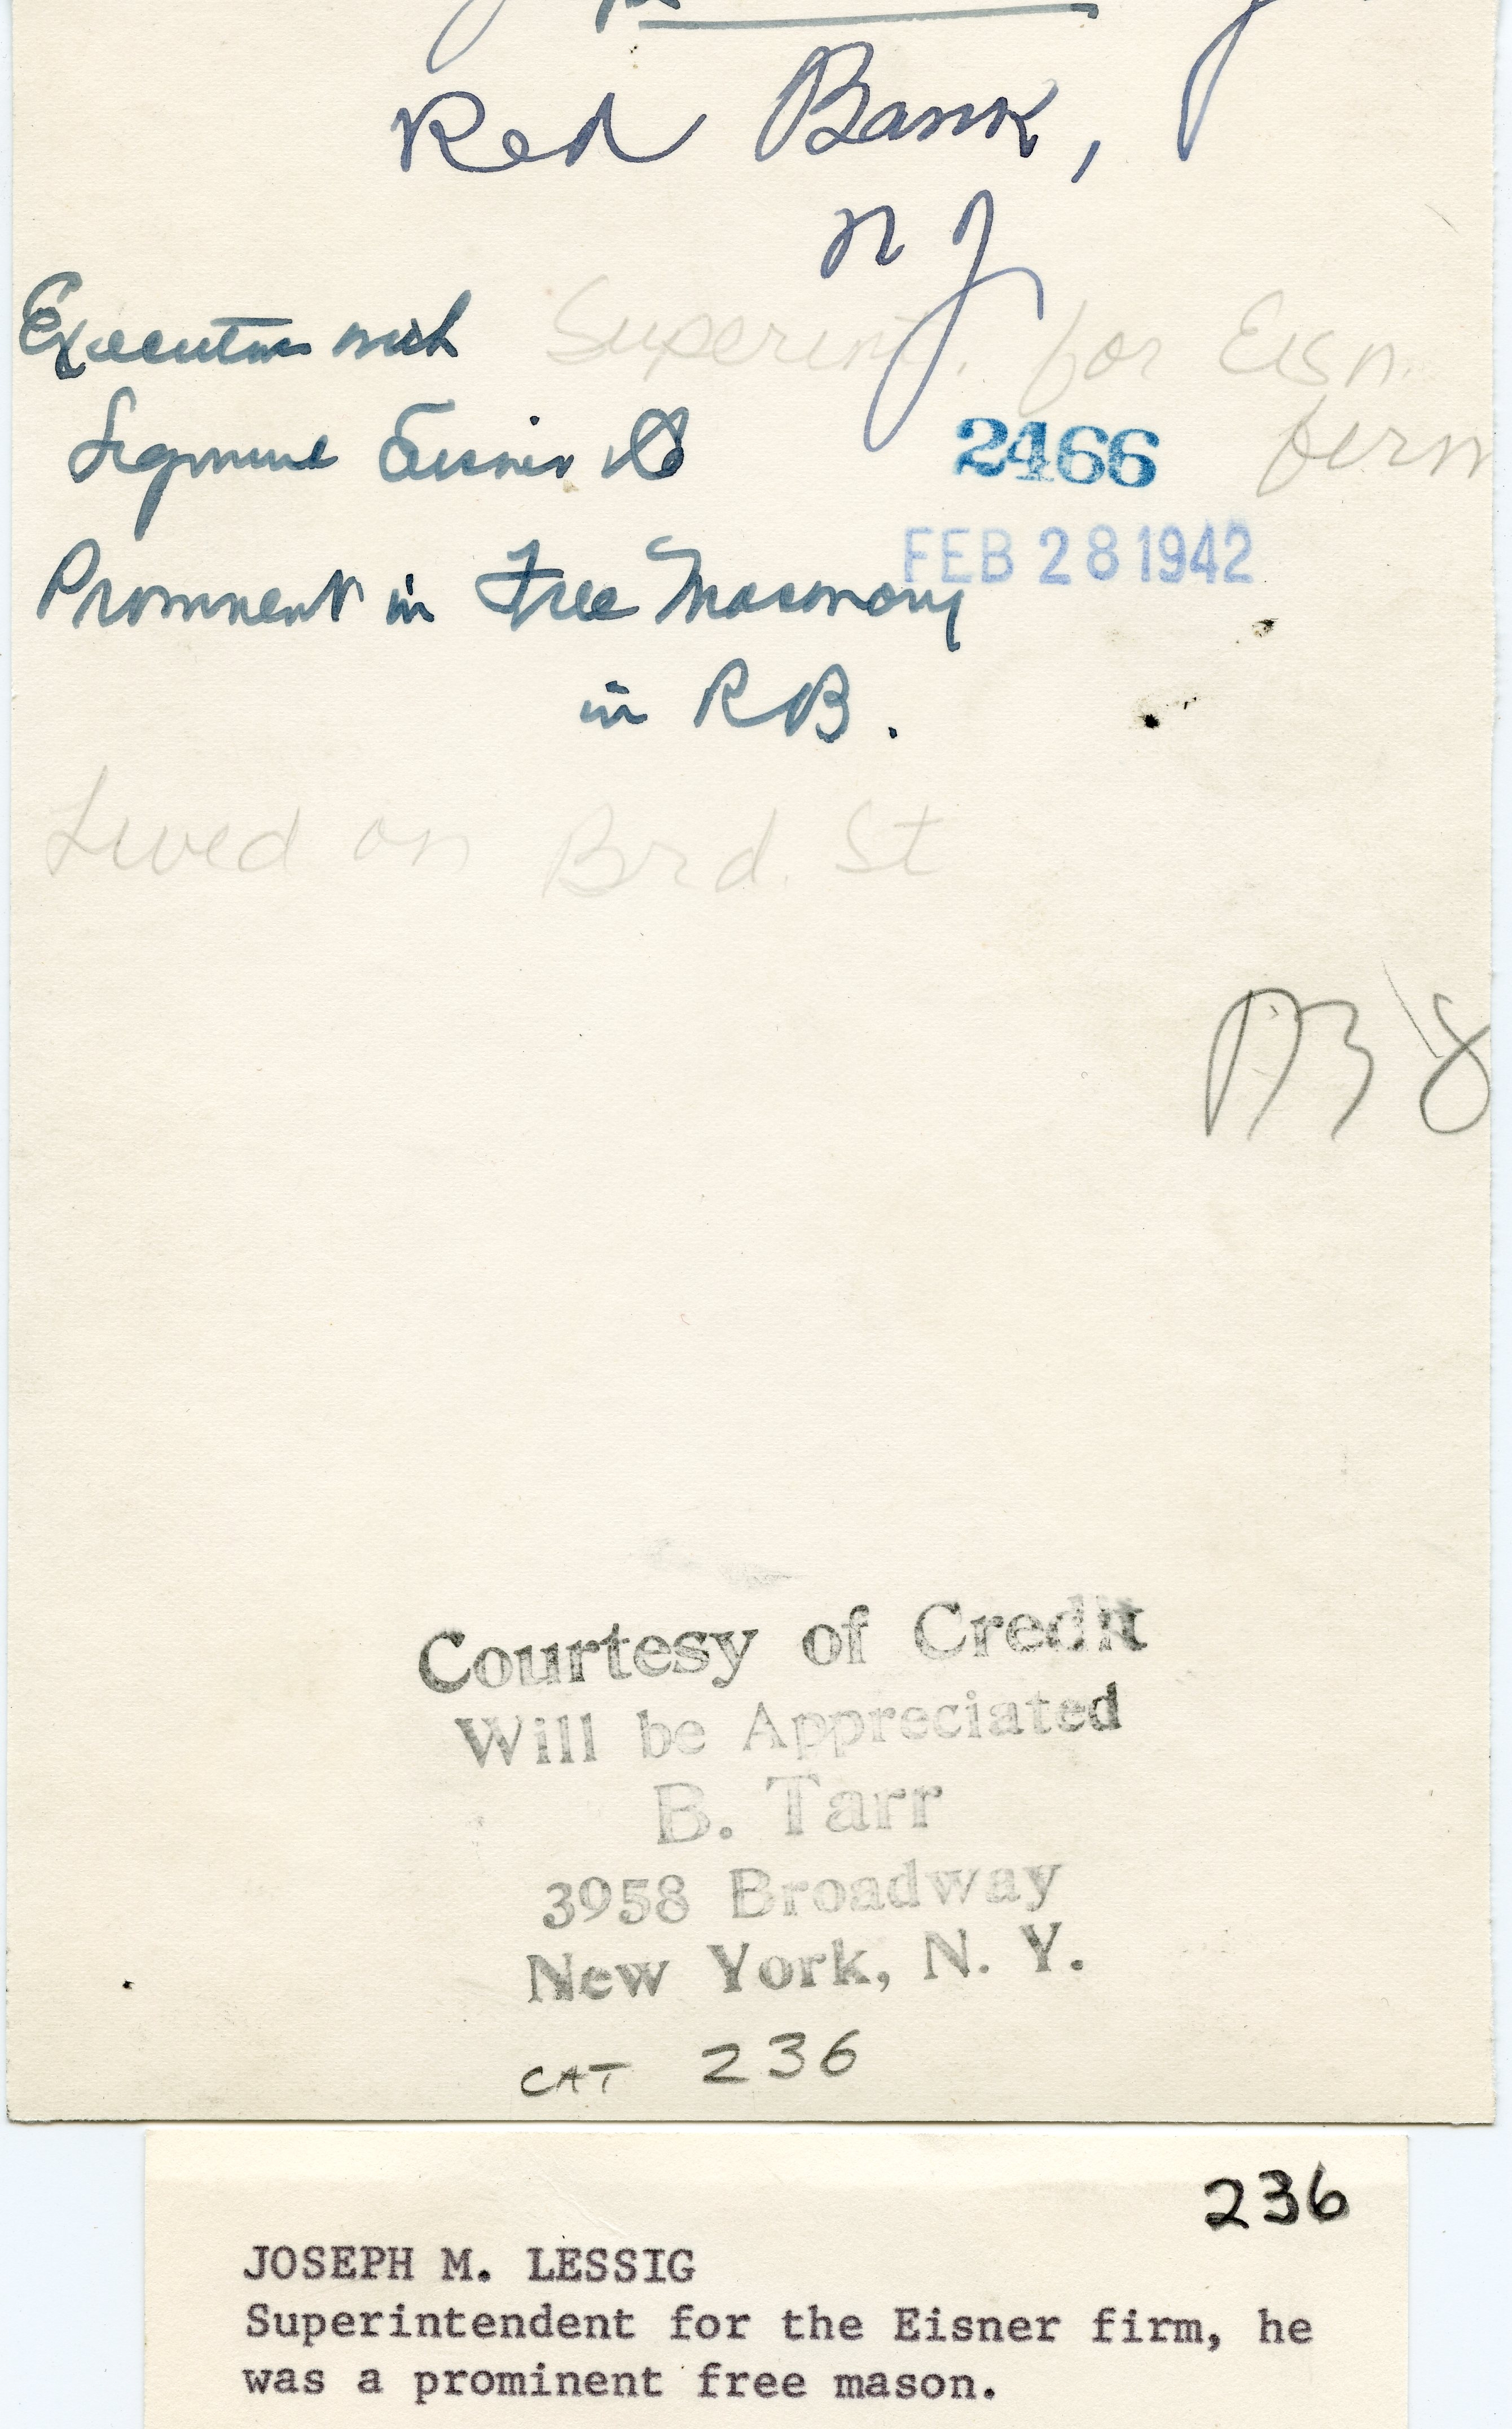 Red Bank,
N J
Executive with
Superint. for Eisn.
firm
Sigmund Eisner Co
2466
FEB 28 1942
Prominent in Free Masonry
in RB.
Lived on Brd. St
Courtesy of Credit
Will be Appreciated
B. Tarr
3958 Broadway
New York, N. Y.
CAT 236
236
JOSEPH M. LESSIG
Superintendent for the Eisner firm, he
was a prominent free mason.